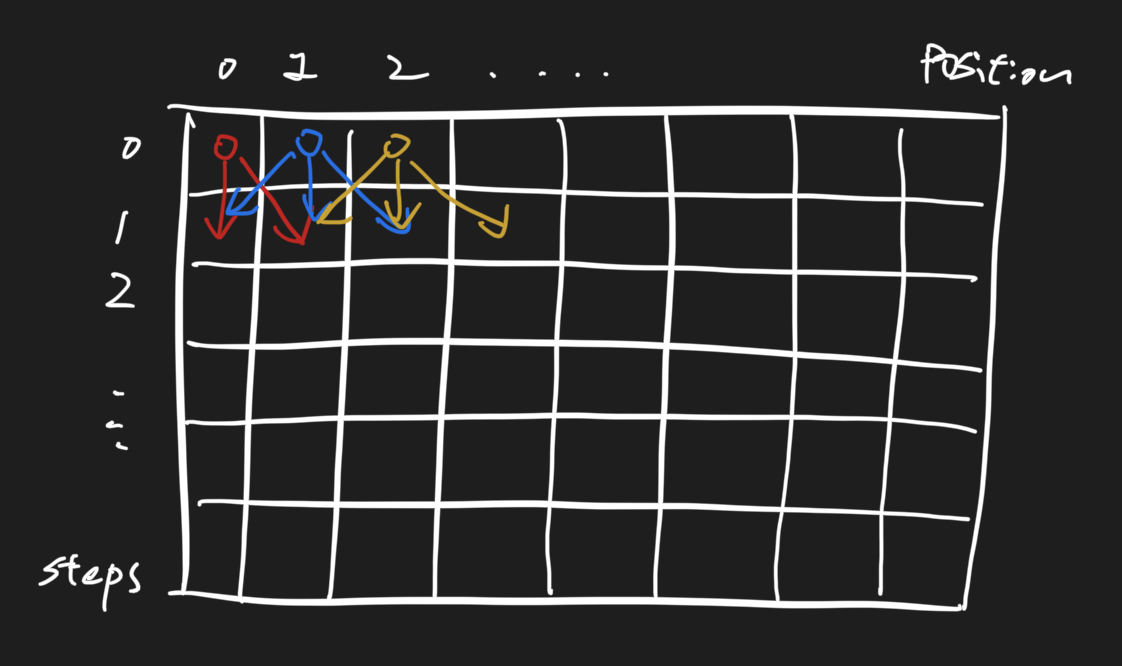 0 1 2 ..... Position
0
1
2
...
steps